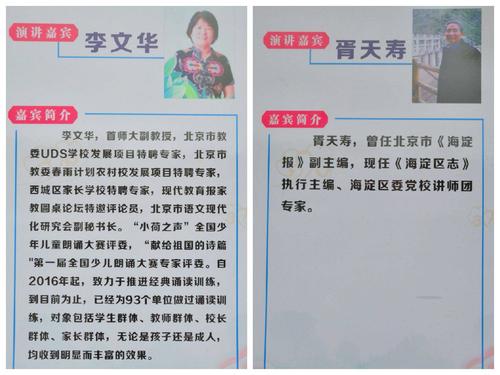 演讲嘉宾
李文华
嘉宾简介
李文华，首师大副教授，北京市教
委UDS学校发展项目特聘专家，北京市教
委春雨计划农村校发展项目特聘专家，
西城区家长学校特聘专家，现代教育报家
教圆桌论坛特邀评论员，北京市语文现代
化研究会副秘书长。“小荷之声”全国少
年儿童朗诵大赛评委，“献给祖国的诗篇
"第一届全国少儿朗诵大赛专家评委。自
2016年起，致力于推进经典诵读训练，
到目前为止，已经为93个单位做过诵读训
练，对象包括学生群体、教师群体、校长
群体、家长群体，无论是孩子还是成人，
均收到明显而丰富的效果。
演讲嘉宾
胥天寿
嘉宾简介
胥天寿，曾任北京市《海淀
报》副主编，现任《海淀区志》
执行主编、海淀区委党校讲师团
专家。